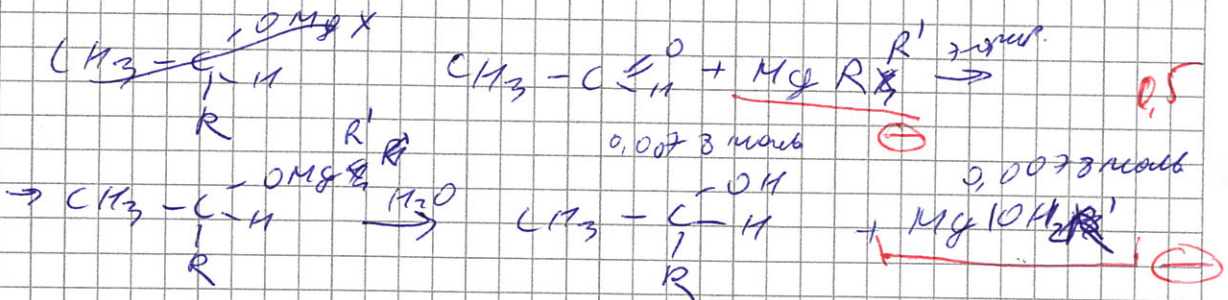 CH3 - C - OMgX
- H
R
CH3 - C = O
- H + MgR R' эфир. →
0,5
0,0073 моль
0,0073 моль
→ CH3 - C - OMg R'
- H
R
H2O →
CH3 - C - OH
- H
R
+ Mg(OH)2
⊖
⊖